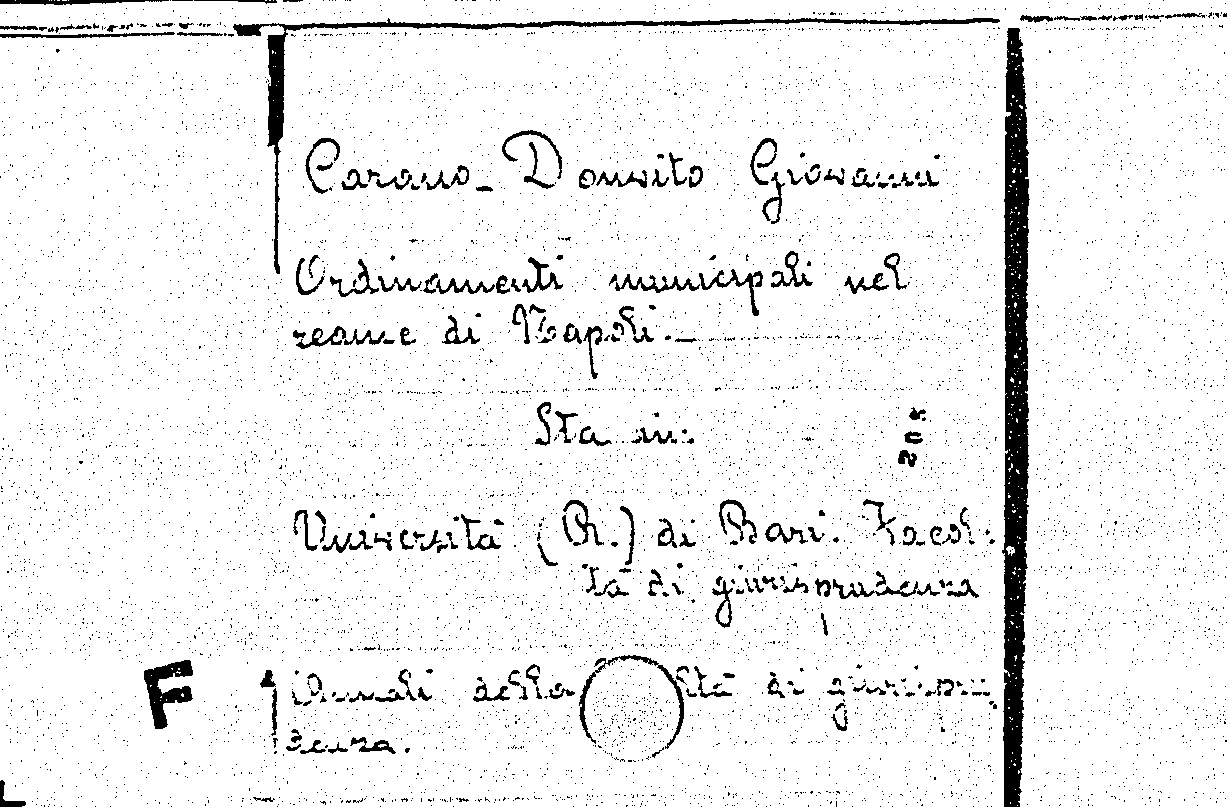 Carano-Donvito Giovanni
Ordinamenti municipali nel
reame di Napoli.-
Sta in:
Università (R.) di Bari. Facol-
tà di giurisprudenza
Annali della ltà di giurispru
denza.
F